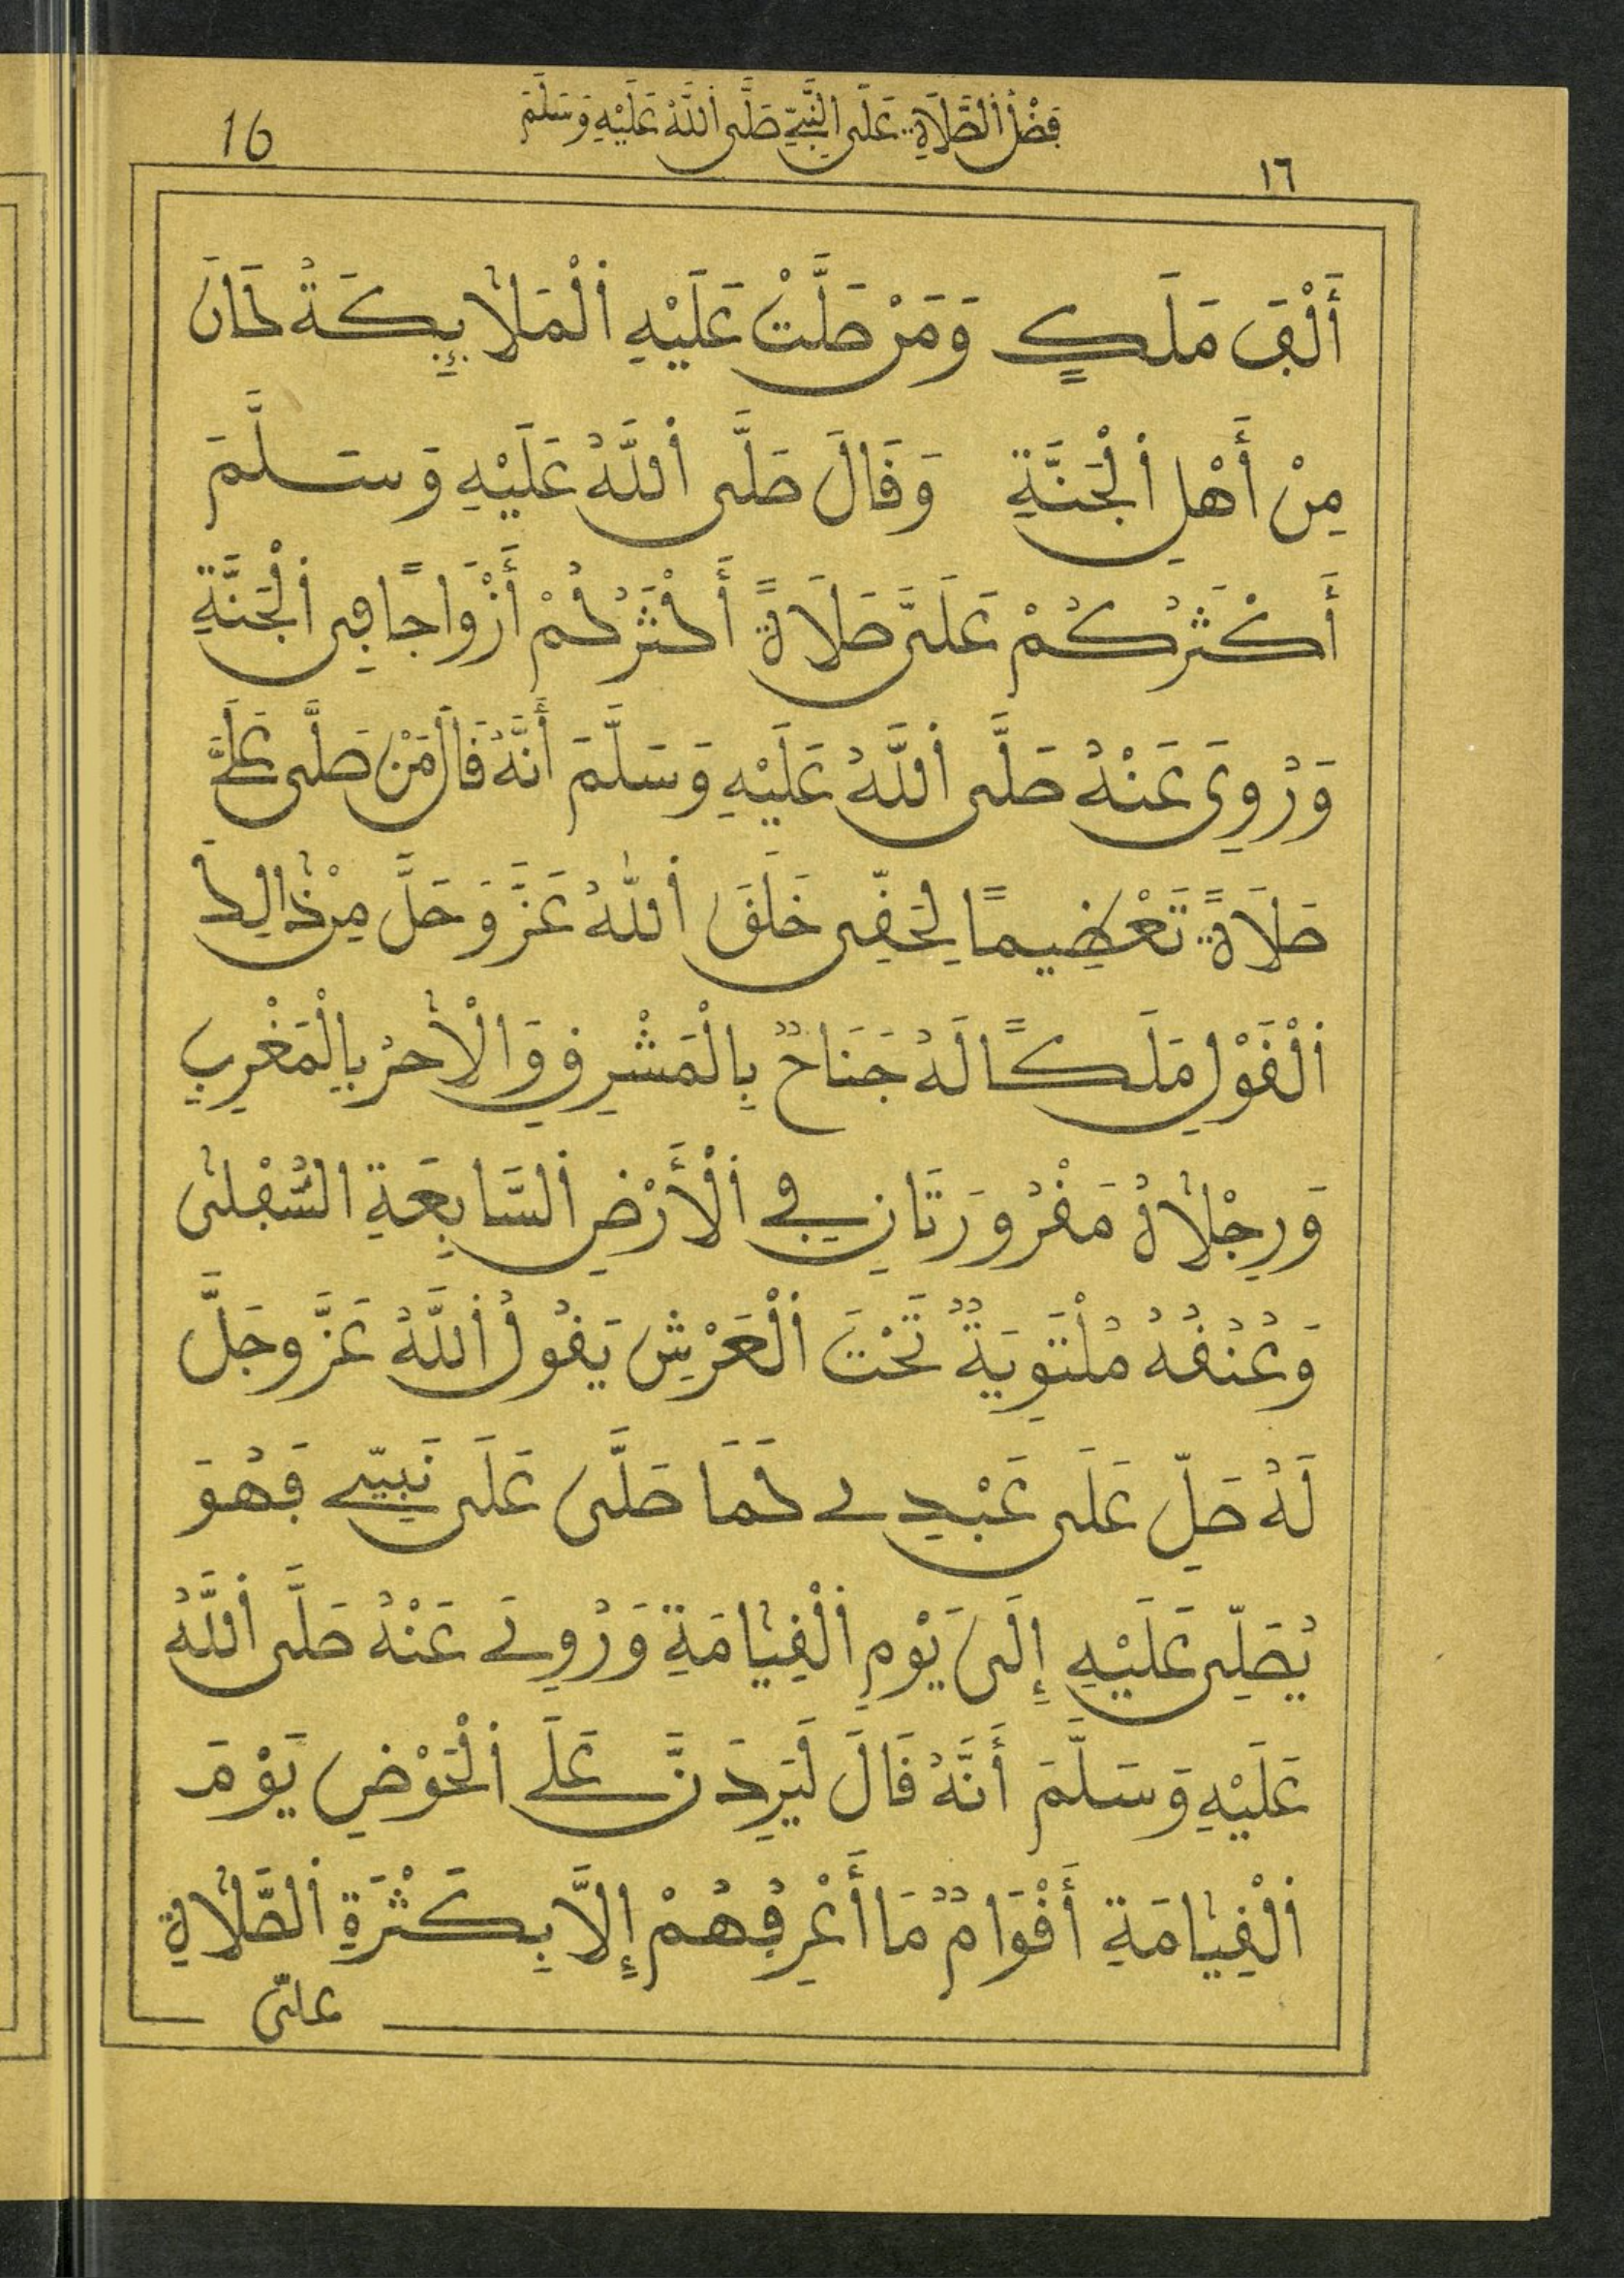 فَضْلُ الصَّلَاةِ عَلَى النَّبِيِّ صَلَّى اللَّهُ عَلَيْهِ وَسَلَّمَ
16
١٦
أَلْفَ مَلَكٍ وَمَنْ صَلَّتْ عَلَيْهِ الْمَلَائِكَةُ كَانَ
مِنْ أَهْلِ الْجَنَّةِ وَقَالَ صَلَّى اللَّهُ عَلَيْهِ وَسَلَّمَ
أَكْثَرُكُمْ عَلَيَّ صَلَاةً أَكْثَرُكُمْ أَزْوَاجًا فِي الْجَنَّةِ
وَرُوِيَ عَنْهُ صَلَّى اللَّهُ عَلَيْهِ وَسَلَّمَ أَنَّهُ قَالَ مَنْ صَلَّى عَلَيَّ
صَلَاةً تَعْظِيمًا لِحَقِّي خَلَقَ اللَّهُ عَزَّ وَجَلَّ مِنْ ذَالِكَ
الْقَوْلِ مَلَكًا لَهُ جَنَاحٌ بِالْمَشْرِقِ وَالْاخَرُ بِالْمَغْرِبِ
وَرِجْلَاهُ مَقْرُورَتَانِ فِي الْأَرْضِ السَّابِعَةِ السُّفْلَى
وَعُنُقُهُ مُلْتَوِيَةٌ تَحْتَ الْعَرْشِ يَقُولُ اللَّهُ عَزَّ وجَلَّ
لَهُ صَلِّ عَلَى عَبْدِي كَمَا صَلَّى عَلَى نَبِيِّي فَهُوَ
يُصَلِّي عَلَيْهِ إِلَى يَوْمِ الْقِيَامَةِ وَرُوِيَ عَنْهُ صَلَّى اللَّهُ
عَلَيْهِ وَسَلَّمَ أَنَّهُ قَالَ لَيَرِدَنَّ عَلَى الْحَوْضِ يَوْمَ
الْقِيَامَةِ أَقْوَامٌ مَا أَعْرِفُهُمْ إِلَّا بِكَثْرَةِ الصَّلَاةِ
علىّ